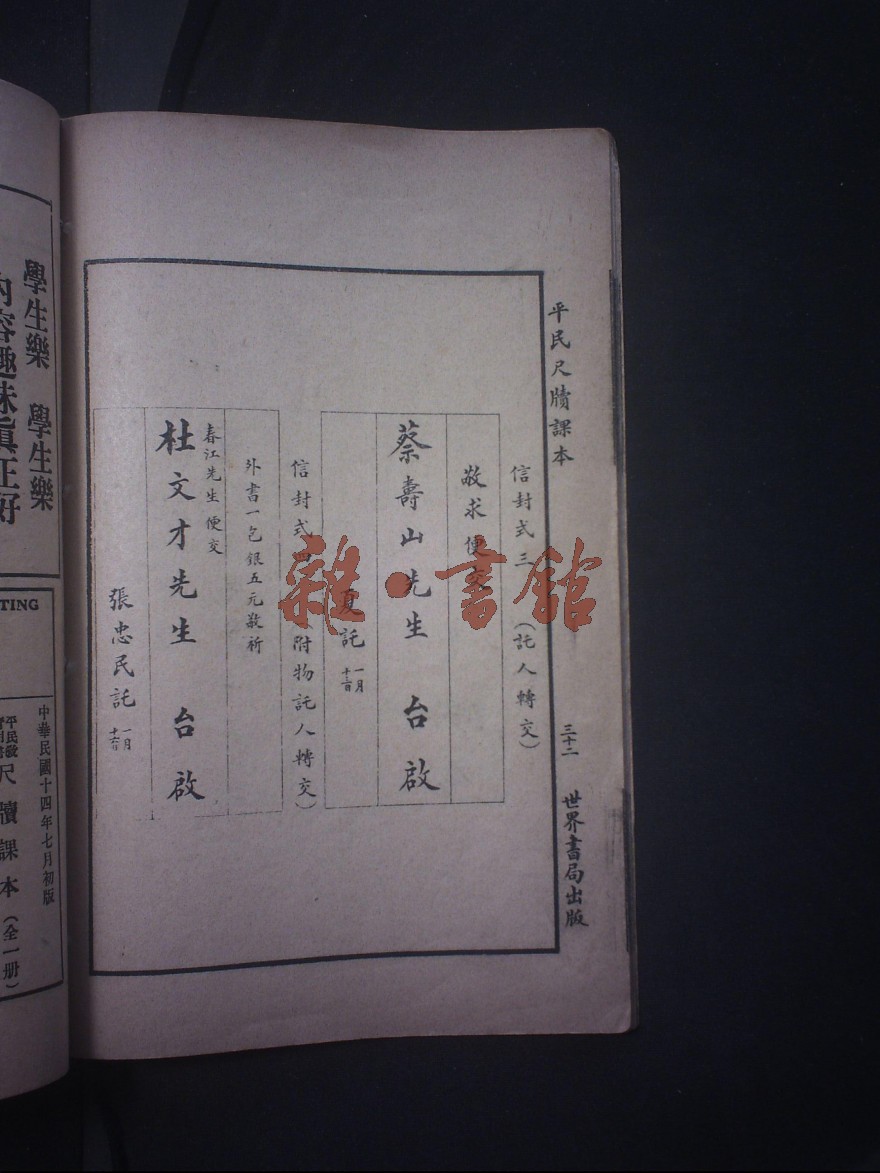 平民尺牘課本
三十二
世界書局出版
信封式三 (託人轉交)
敬求便交
蔡壽山先生 台啟
夏託
信封式四 附物託人轉交)
外書一包銀五元敬祈
春江先生便交
杜文才先生 台啟
張忠民託
雜·書館
學生樂 學生樂
內容趣味真正好
TING
中華民國十四年七月初版
平民
尺牘課本(全一册)